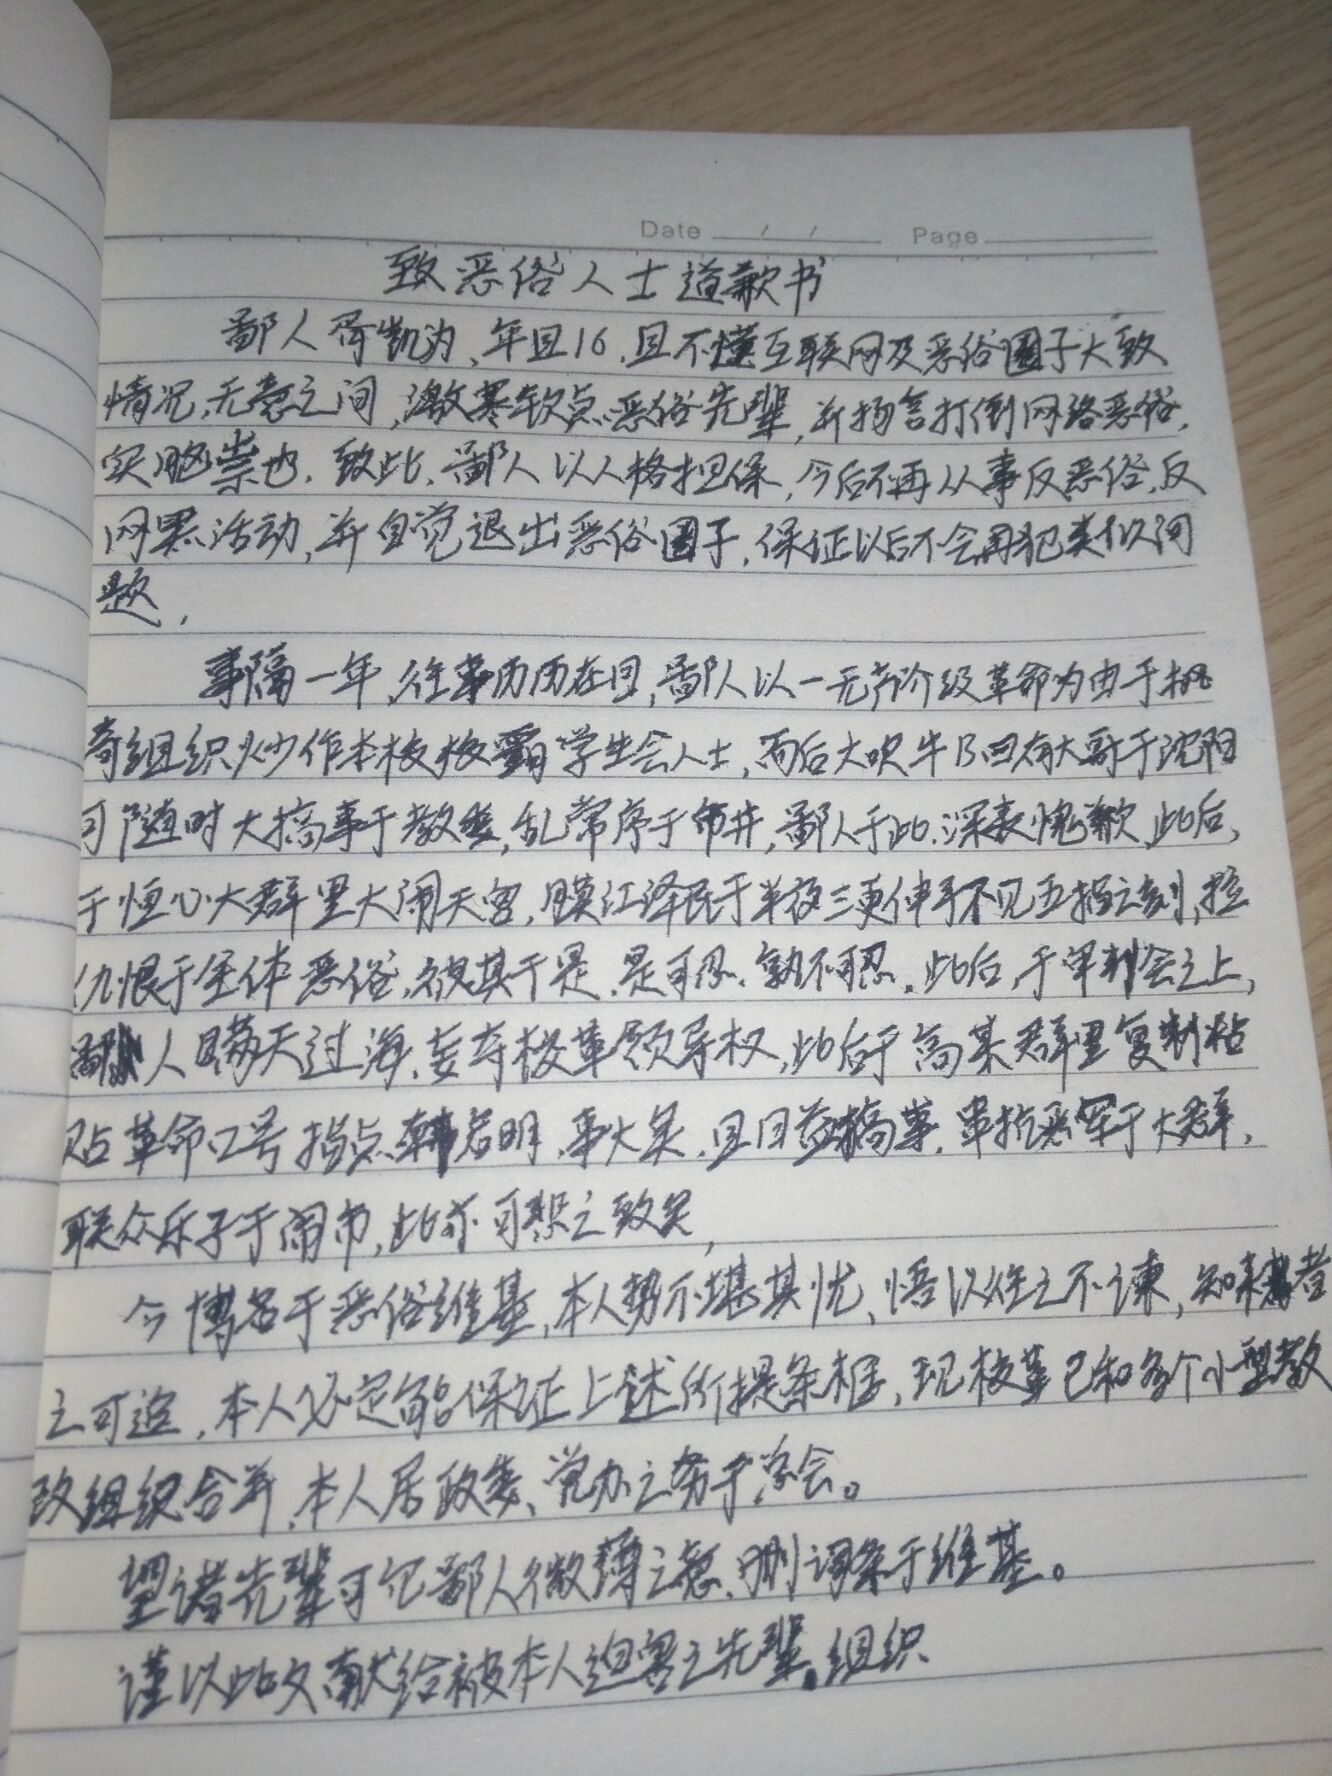 Date / / Page
致恶俗人士道歉书
鄙人胥凯为,年且16,且不懂互联网及恶俗圈子大致
情况,无意之间,激寒软点恶俗先辈,并扬言打倒网络恶俗,
实脑祟也.致此,鄙人以人格担保,今后不再从事反恶俗,反
网黑活动,并自觉退出恶俗圈子,保证以后不会再犯类似问
题,
事隔一年,往事历历在目,鄙人以一无产阶级革命为由于
奇组织炒作本校校霸学生会人士,而后大吹牛B曰有大哥于沈阳
可随时大搞事于教委,乱常序于市井,鄙人于此.深表愧歉,此后,
于恒心大群里大闹天宫,膜江泽民于半夜三更伸手不见五指之刻,拉
仇恨于全体恶俗,于是.是可忍.孰不可忍.此后,于审判会之上,
鄙人瞒天过海,妄夺校革领导权,此后于高某群里复制粘
贴革命口号指点韩名明,事大矣,且日益搞事,单抗恶军于大群,
联众乐子于闹市,此亦可恕之致矣,
今博名于恶俗维基,本人势不堪其忧,悟以往之不谏,知来者
之可追,本人必定能保证上述所提条框,现校革已和各个小型教
改组织合并,本人居政委、党办之务于学会。
望诸先辈可记鄙人微薄之意,删词条于维基。
谨以此文献给被本人迫害之先辈,组织